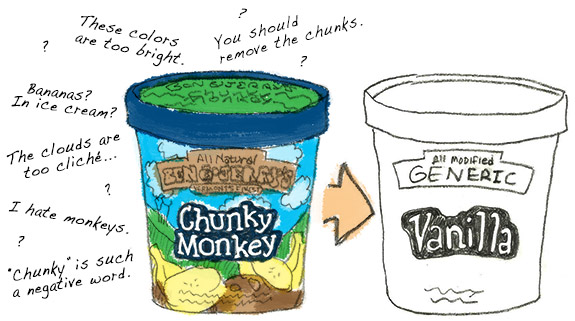 ?
These colors
are too bright.
?
You should
remove the chunks.
?
Bananas?
In ice cream?
The clouds are
too cliché...
?
I hate monkeys.
?
"Chunky" is such
a negative word.
BEN & JERRY'S
All Natural
BEN & JERRY'S
VERMONT'S FINEST
Chunky
Monkey
All Modified
GENERIC
Vanilla